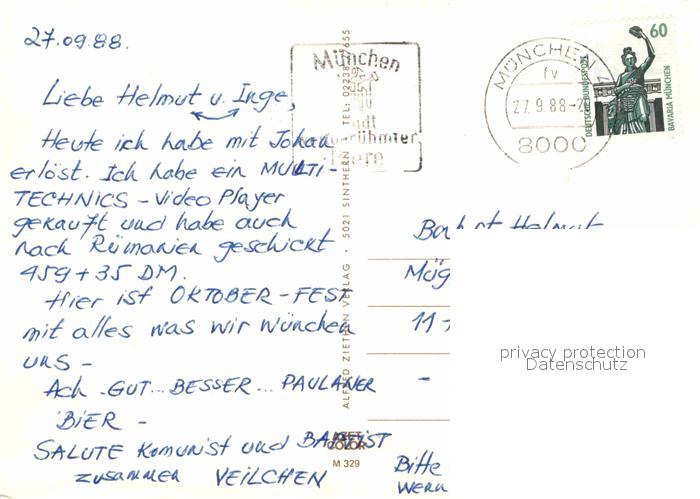 27.09.88.
Liebe Helmut u. Inge,
Heute ich habe mit Johan
erlöst. Ich habe ein MULTI-
TECHNICS - Video Player
gekauft und habe auch
nach Rümanien geschickt
459 + 35 DM.
Hier ist OKTOBER-FEST
mit alles was wir wünchen
uns -
Ach GUT... BESSER... PAULANER
BIER -
SALUTE Komunist und
zusammen VEILCHEN
ALFRED ZIETHEN VERLAG · 5021 SINTHERN · TEL: 02238
M 329
München
MÜNCHEN
fv
27.9.88
8000
60
DEUTSCHE BUNDESPOST
BAVARIA MÜNCHEN
Helmut
Mög
11
-
Bitte
wenn
privacy protection
Datenschutz